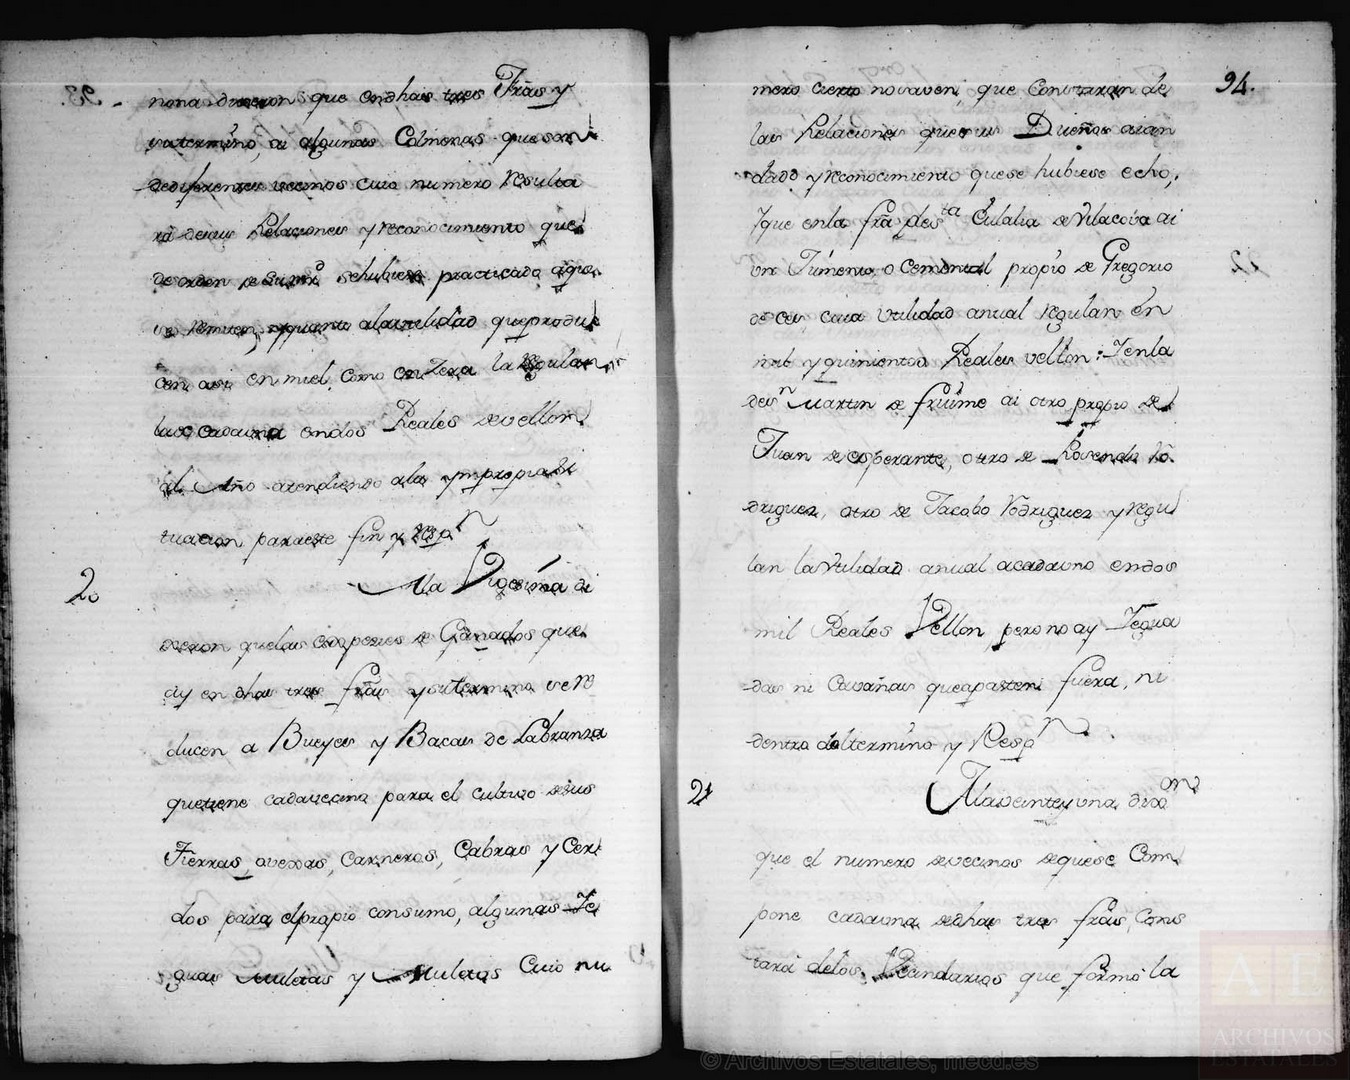 nona dixeron que en dhas tres Frãs y
su termino, ai algunas Colmenas que son
de diferentes vecinos cuio numero resulta
rá de sus Relaciones y reconocimiento que
de orden de su mrd se hubiese practicado a que
se remiten, y quanto a la utilidad que produ
cen asi en miel, como en Zera la regulan
a cada una en dos Reales de vellon
al Año atendiendo a la ympropia si
tuacion para este fin y resp.n
20
A la Vigesima di
xeron que las expezies de Ganados que
ay en dhas tres frãs y su termino se re
ducen a Bueyes y Bacas de Labranza
que tiene cada vecino para el cultivo de sus
Tierras, ovexas, Carneros, Cabras y Cer
dos para el propio consumo, algunas Ye
guas Muletas y Muletos Cuio nu
94.
mero cierto no saven, que Constaran de
las Relaciones que sus Dueños aian
dado y reconocimiento que se hubiese echo,
Y que en la frã de s.ta Eulalia de Vilacova ai
un Jumento o Cementál propio de Gregorio
de Cea, cuia utilidad anual regulan en
mil y quinientos Reales vellon: Y en la
de s.n Martin de fruime ai otro propio de
Juan de esperante, otro de Rosendo Ro
driguez, otro de Jacobo Rodriguez y regu
lan la utilidad anual a cada uno en dos
mil Reales Vellon pero no ay Yegua
das ni Cavañas que apasten fuera, ni
dentro del termino y Resp.n
21
A la veinte y una dix.on
que el numero de vecinos de que se Com
pone cada una de dhas tres frãs, Cons
tará de los Beandarios que formó la
© Archivos Estatales, mecd.es
AE
ARCHIVOS
ESTATALES